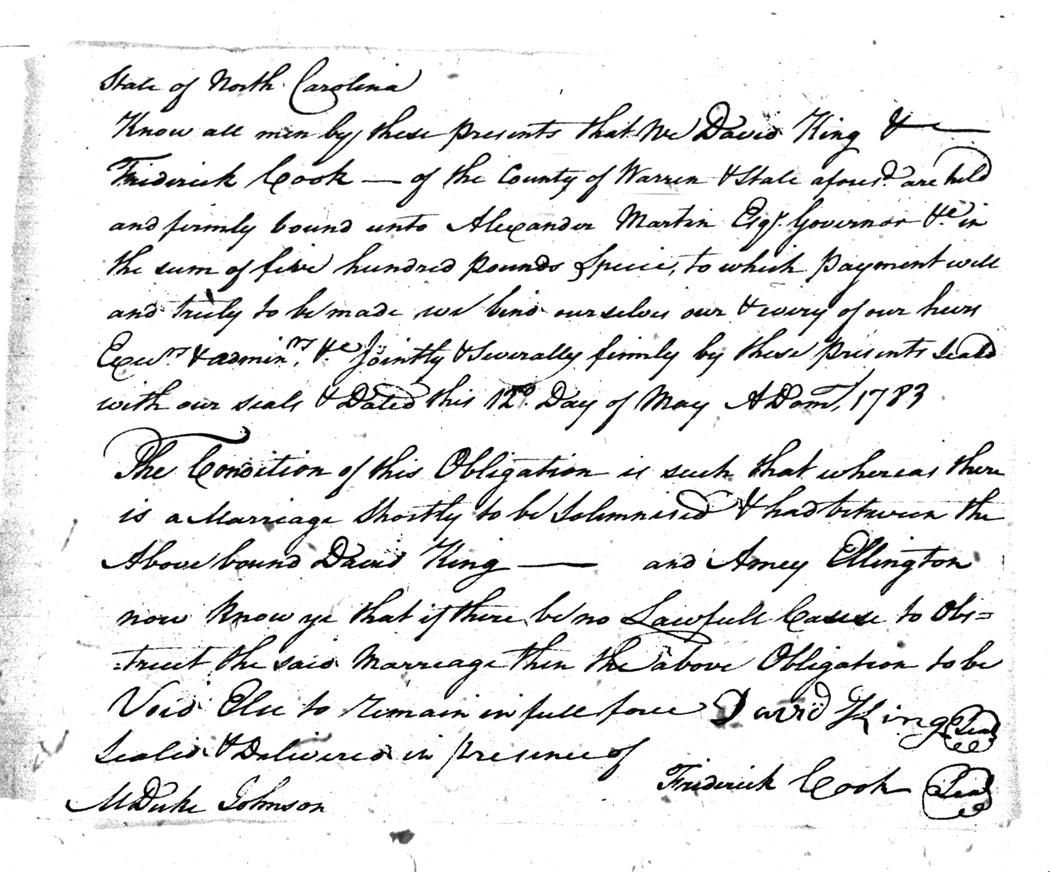 State of North Carolina
Know all men by these presents that We David King & —
Friderick Cook — of the County of Warren & State afores.d are held
and firmly bound unto Alexander Martin Esq.r Governor &c in
the sum of five hundred pounds Specie, to which payment well
and truly to be made we bind ourselves our & every of our heirs
Execu.rs & admin.rs &c Jointly & Severally firmly by these presents Seald
with our seals & Dated this 12.th Day of May A Dom, 1783
The Condition of this Obligation is such that whereas there
is a Marriage shortly to be Solemnised & had between the
Above bound David King — and Amey Ellington
now know ye that if there be no Lawfull Cause to Obs=
=truct the said Marriage then the above Obligation to be
Void Else to remain in full force David King Seal
Sealed & Delivered in presence of
Friderick Cook Seal
M Duke Johnson